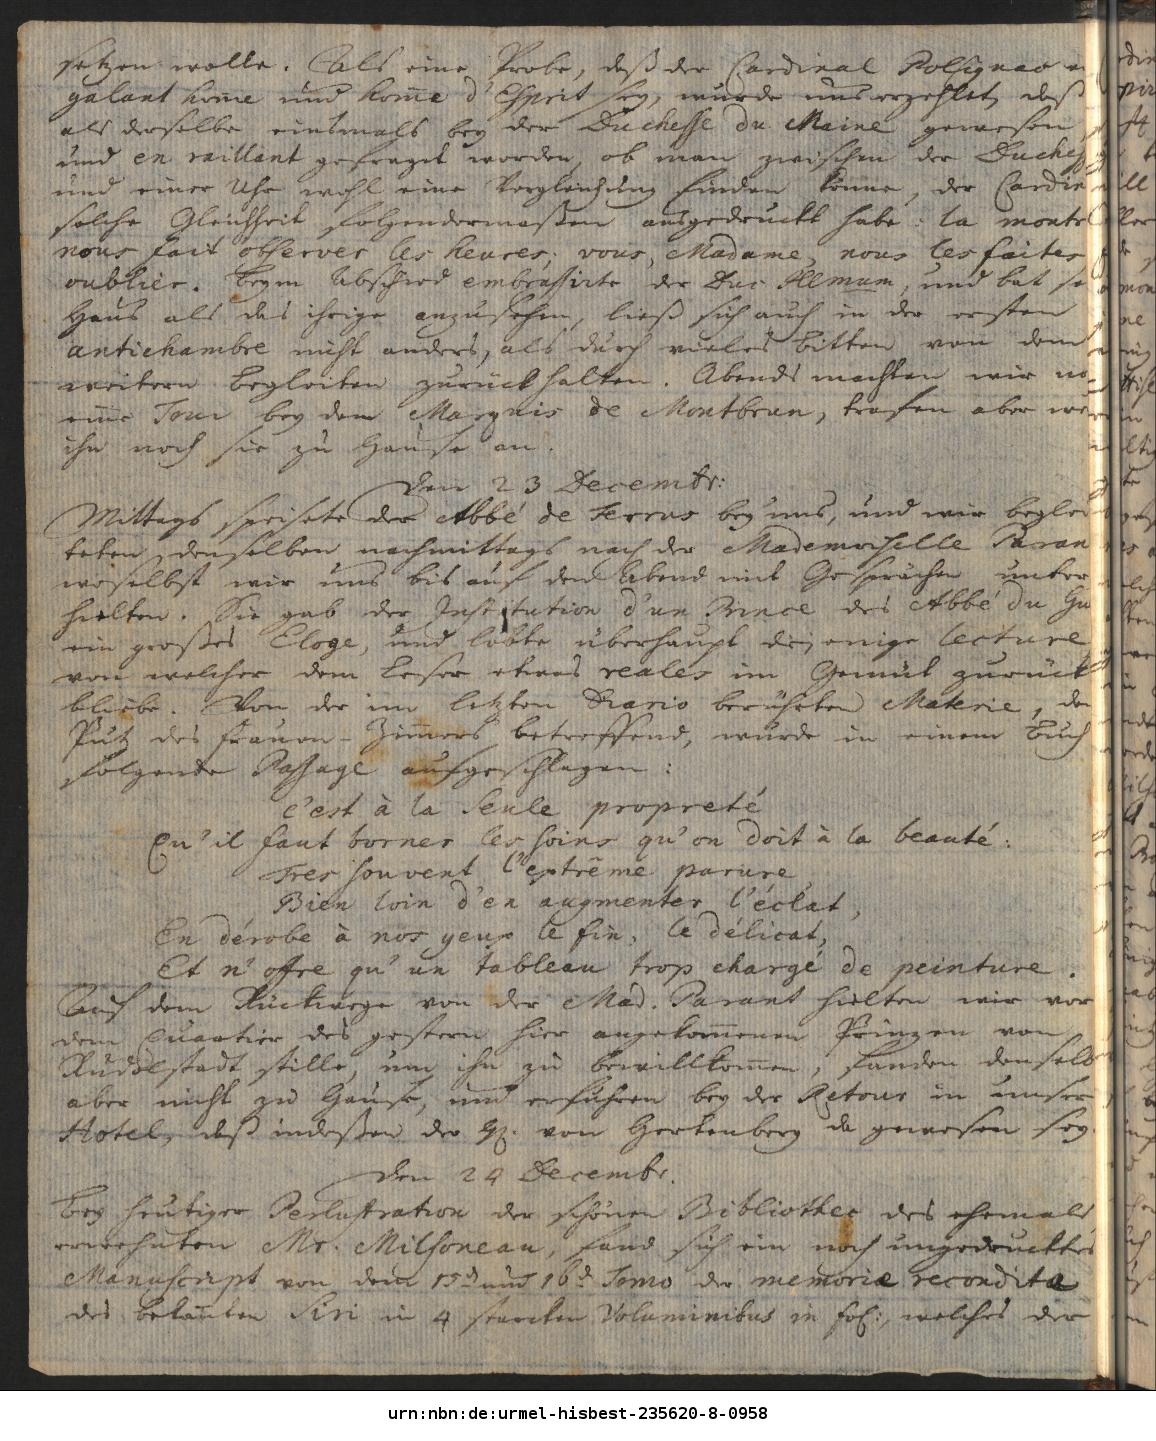 setzen wolle. Als eine Probe, daß der Cardinal Polignac ei
galant home und home d'Esprit sey, wurde uns erzehlet, daß
als derselbe einsmals bey der Duchesse du Maine gewesen
und en raillant gefraget worden, ob man zwischen der Duchess
und einer Uhr wohl eine Vergleichung finden könne, der Cardin
solche Gleichheit folgendermaßen ausgedruckt habe: la montre
nous fait observer les heures; vous, Madame, nous les faites
oublier. Beym Abschied embrassirte der Duc, und bat se
Haus als das ihrige anzusehen, ließ sich auch in der ersten
antichambre nicht anders, als durch vieles bitten von dem
weitern begleiten zurückhalten. Abends machten wir no
eine Tour bey dem Marquis de Montbrun, trafen aber wed
ihn noch sie zu Hause an.
den 23 Decembr:
Mittags speisete der Abbé de Ferrus bey uns, und wir beglei
teten denselben nachmittags nach der Mademoiselle Paran
woselbst wir uns bis auf den Abend mit Gesprächen unter
hielten. Sie gab der Institution d'un Prince des Abbé du Gu
ein großes Eloge, und lobte überhaupt diejenige lecture
von welcher dem Leser etwas reales im Gemüt zurück
bliebe. Von der im letzten Diario berührten Materie, de
Putz des Frauen-Zimers betreffend, wurde in einem Buch
folgende Passage aufgeschlagen:
C'est à la seule propreté
Qu'il faut borner les soins qu'on doit à la beauté:
Tres souvent l'extrême parure
Bien loin d'en augmenter l'éclat,
En dérobe à nos yeux le fin, le délicat,
Et n'offre qu'un tableau trop chargé de peinture.
Auf dem Rückwege von der Mad. Parant hielten wir vor
dem Quartier des gestern hier angekommenen Prinzen von
Rudolstadt stille, um ihn zu bewillkomen, fanden denselb
aber nicht zu Hause, und erfuhren bey der Retour in unser
Hotel, daß indeßen der H. von Hertenberg da gewesen sey.
den 24 Decembr.
Bey heutiger Perlustration der schönen Bibliothec des ehemals
erwehnten Mr. Milsoneau, fand sich ein noch ungedrucktes
Manuscript von dem 15d und 16d Tomo der memoriæ recondita
des bekanten Siri in 4 starcken Voluminibus in fol:, welches der
urn:nbn:de:urmel-hisbest-235620-8-0958